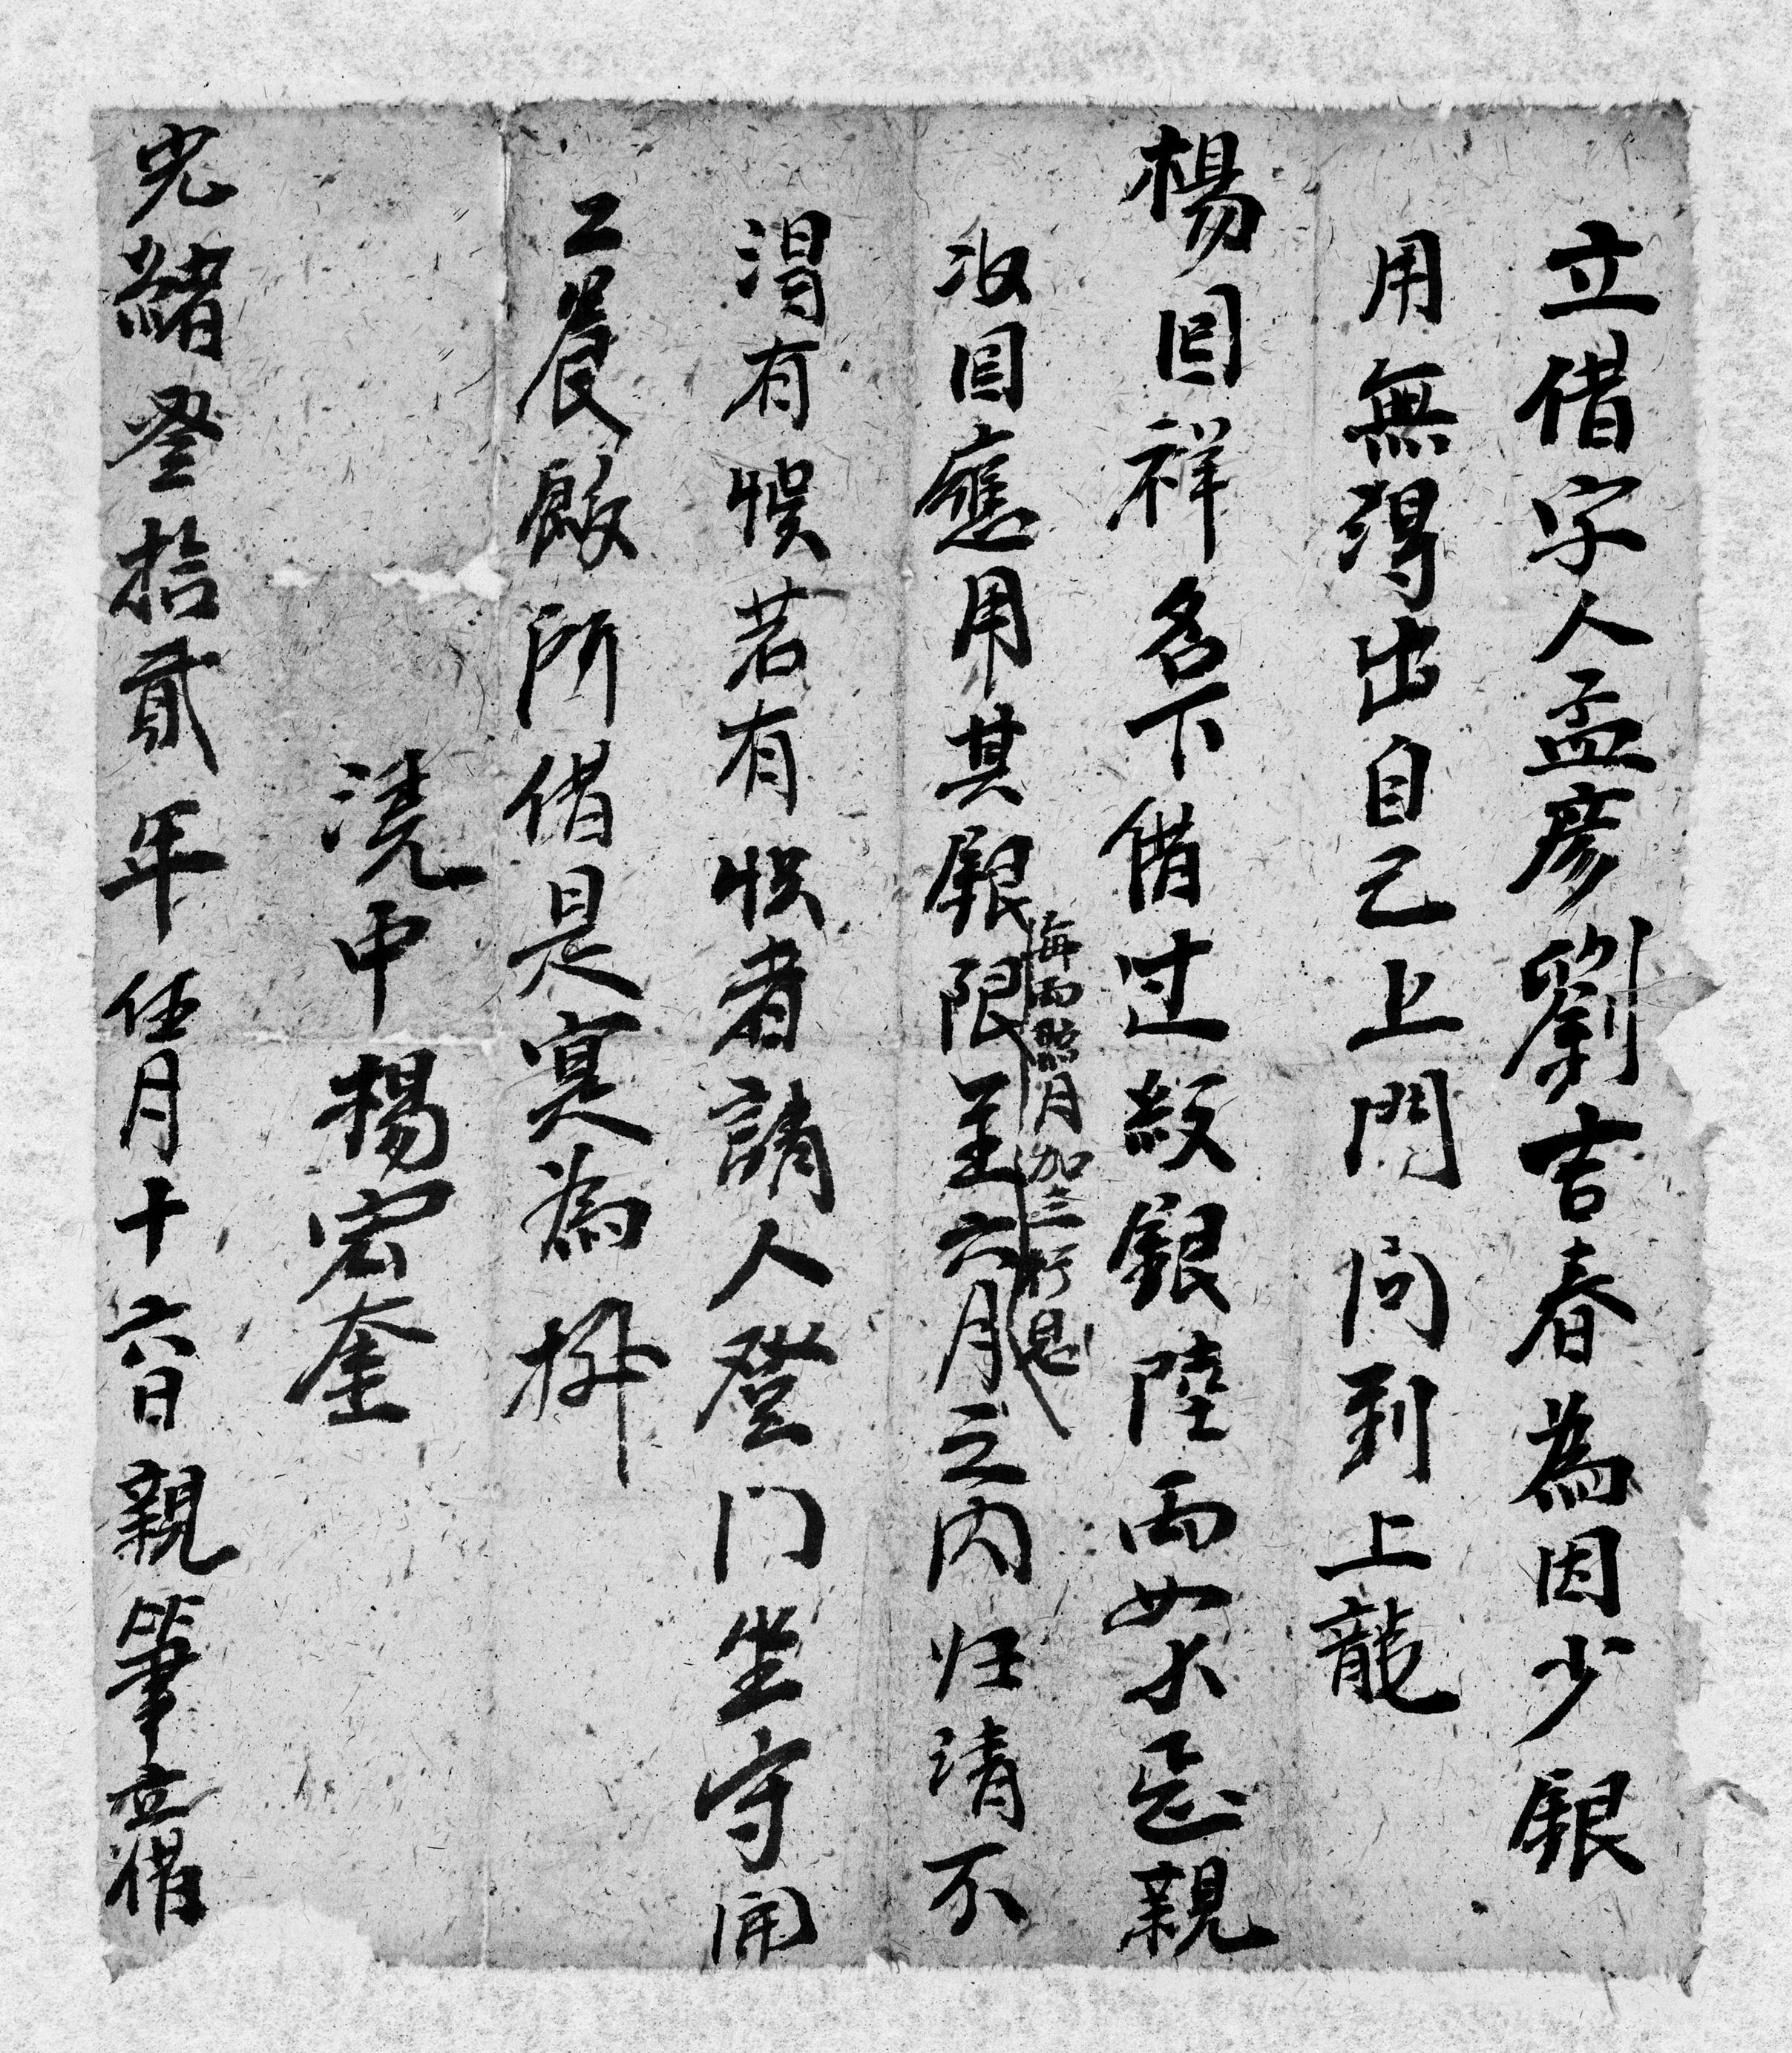 立借字人孟彦劉吉春為因少銀
用無得出自己上門问到上龍
楊国祥名下借过紋銀陸両如水足親
收回應用其銀限至六月之内归清不
海両照月加三行息
得有悞若有悞者請人登门坐守開
工晨飯所借是寔為㨿
凭中楊宏奎
光緒叁拾貳年伍月十六日親筆立借